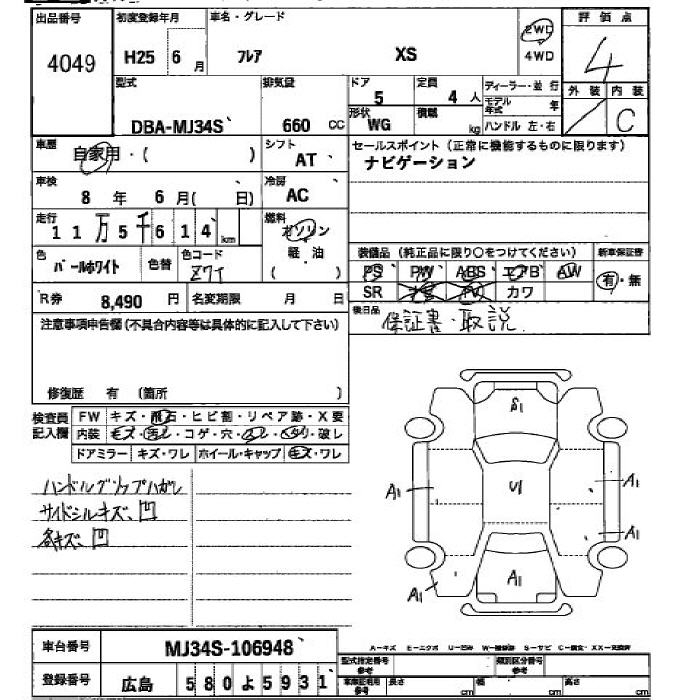 出品番号 初度登録年月 車名・グレード 2WD 評価点
4049 H25 6月 フレア XS 4WD 4
型式 排気量 ドア 5 定員 4人 ディーラー・並行 外装 内装
モデル年式 年
DBA-MJ34S 660 CC 形状 WG 積載 kg ハンドル 左・右 C
車歴 自家用・( ) シフト AT セールスポイント (正常に機能するものに限ります)
ナビゲーション
車検 8年 6月( 日) 冷房 AC
走行 11万5千614km 燃料 ガソリン
軽・油
( )
色 パールホワイト 色替 色コード 装備品 (純正品に限り○をつけてください) 新車保証書
PS PW ABS エアB AW 有・無
R券 8,490円 名変期限 月 日 SR ナビ TV カワ
注意事項申告欄(不具合内容等は具体的に記入して下さい) 後日品 保証書・取説
修復歴 有 (箇所 )
検査員記入欄 FW キズ・飛石・ヒビ割・リペア跡・X要
内装 キズ・汚れ・コゲ・穴・破レ
ドアミラー キズ・ワレ ホイール・キャップ キズ・ワレ
ハンドルグリップハガレ
サイドシルキズ、凹
各キズ、凹
A1
U1
A1
A1
A1
A1
A-キズ E-エクボ U-凹み S-サビ
車台番号 MJ34S-106948
型式指定番号 参考 類別区分番号 参考
登録番号 広島 580よ5931
車庫証明用 参考 長さ cm 幅 cm 高さ cm